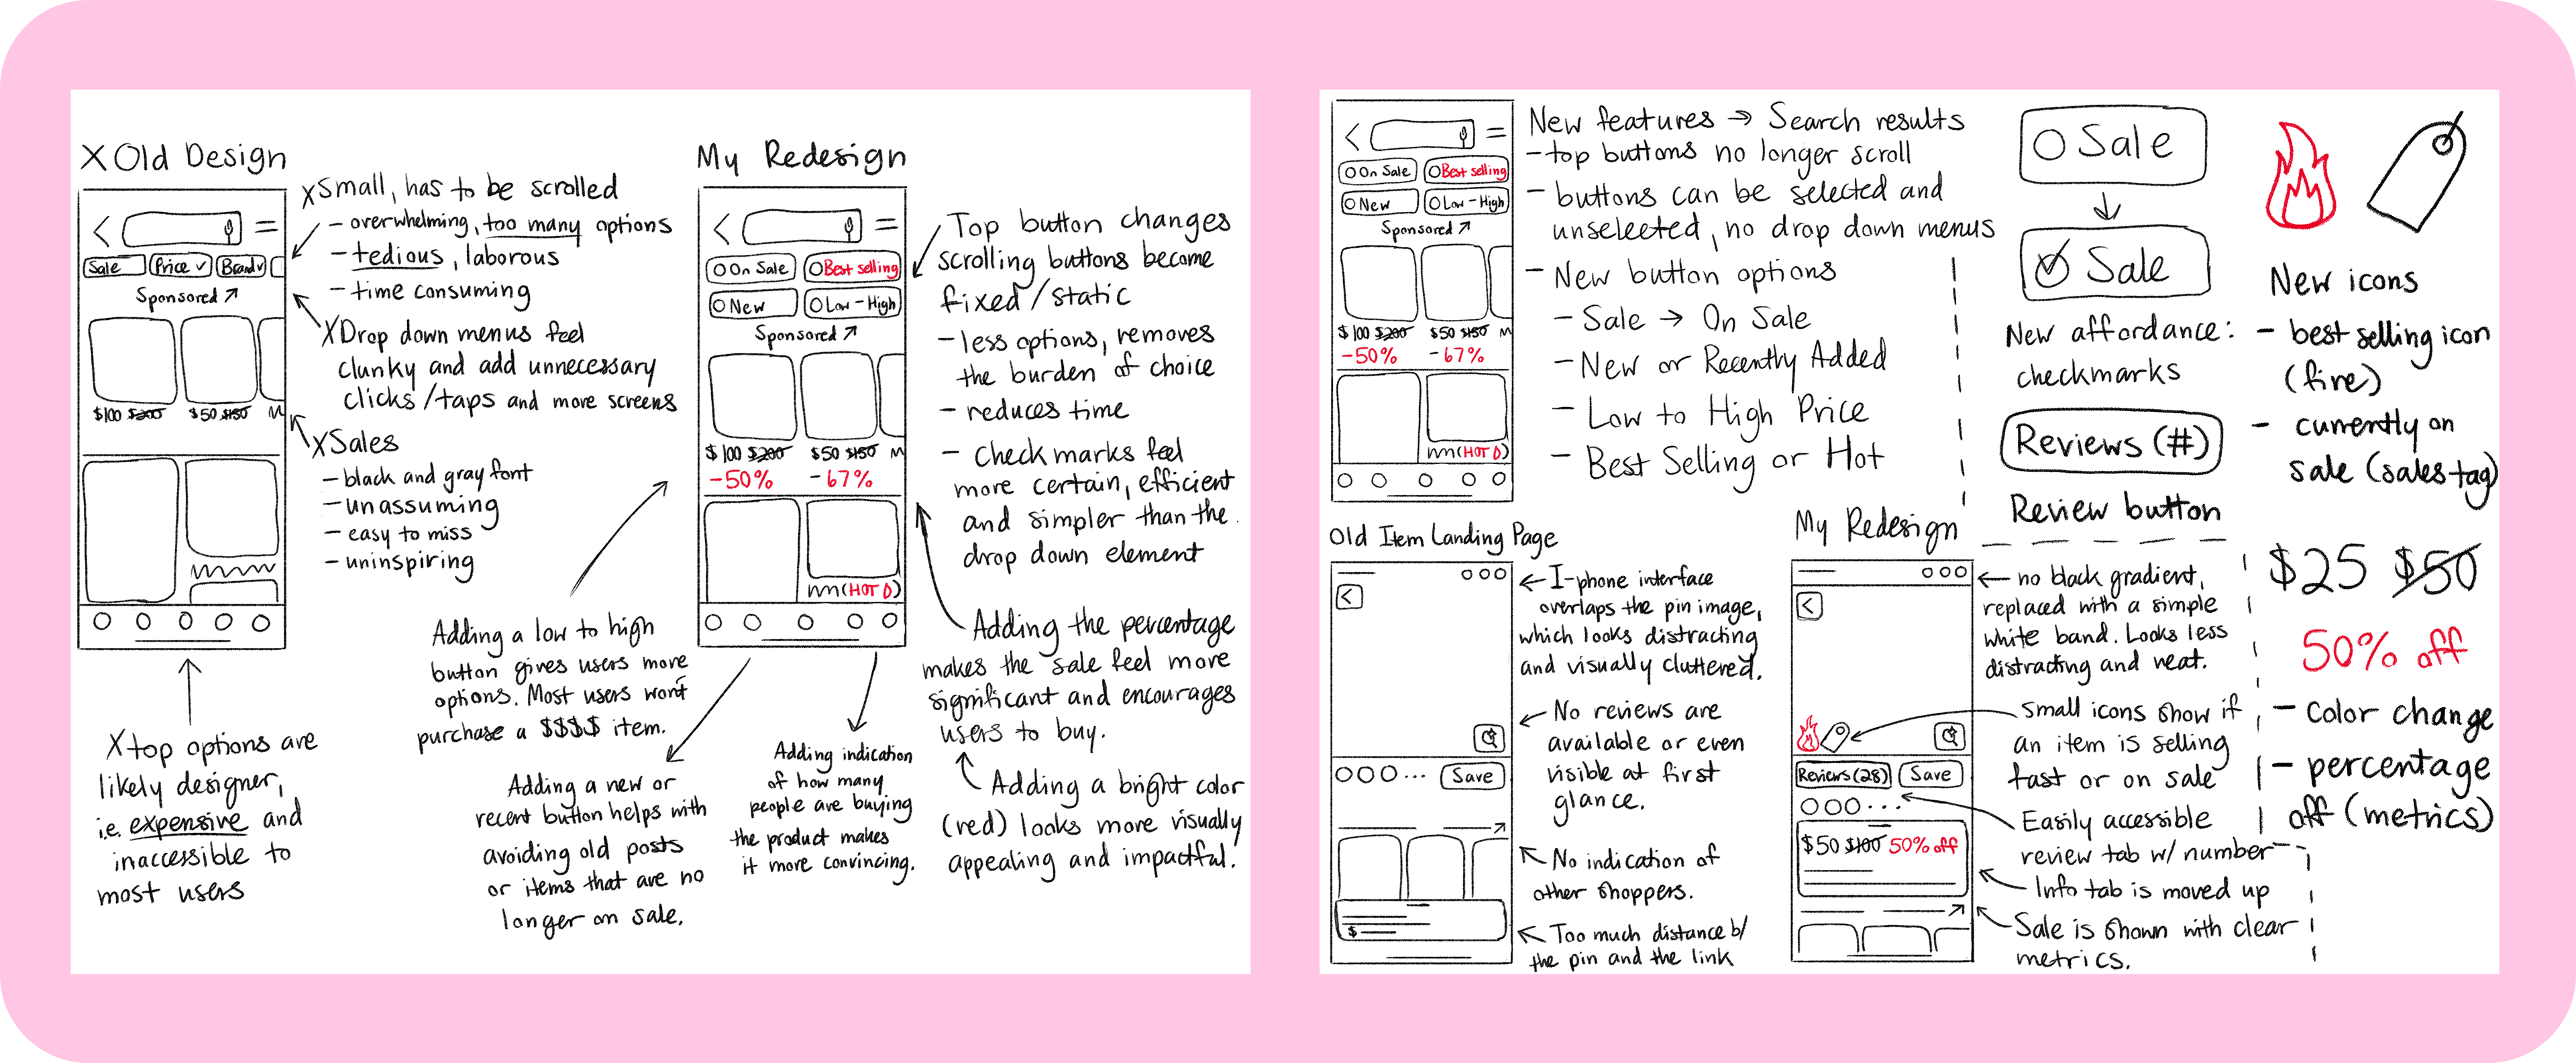 X Old Design
Sale
Price
Brand
Sponsored ↗
$100 $200
$50 $150
M
X Small, has to be scrolled
- overwhelming, too many options
- tedious, laborous
- time consuming
X Drop down menus feel
clunky and add unnecessary
clicks/taps and more screens
X Sales
- black and gray font
- unassuming
- easy to miss
- uninspiring
X top options are
likely designer,
i.e. expensive and
inaccessible to
most users
My Redesign
On Sale
Best selling
New
Low - High
Sponsored ↗
$100 $200
$50 $150
M
-50%
-67%
(HOT)
Top button changes
scrolling buttons become
fixed/static
- less options, removes
the burden of choice
- reduces time
- Check marks feel
more certain, efficient
and simpler than the
drop down element
Adding a low to high
button gives users more
options. Most users won't
purchase a $$$$ item.
Adding a new or
recent button helps with
avoiding old posts
or items that are no
longer on sale.
Adding indication
of how many
people are buying
the product makes
it more convincing.
Adding the percentage
makes the sale feel more
significant and encourages
users to buy.
Adding a bright color
(red) looks more visually
appealing and impactful.
On Sale
Best selling
New
Low - High
Sponsored ↗
$100 $200
$50 $150
M
-50%
-67%
(HOT)
New features → Search results
- top buttons no longer scroll
- buttons can be selected and
unselected, no drop down menus
- New button options
- Sale → On Sale
- New or Recently Added
- Low to High Price
- Best Selling or Hot
Sale
Sale
New affordance:
checkmarks
Reviews (#)
Review button
New icons
- best selling icon
(fire)
- currently on
sale (sales tag)
$25 $50
50% off
- color change
- percentage
off (metrics)
Old Item Landing Page
Save
$
I-phone interface
overlaps the pin image,
which looks distracting
and visually cluttered.
No reviews are
available or even
visible at first
glance.
No indication of
other shoppers.
Too much distance b/
the pin and the link
My Redesign
Reviews (28)
Save
$50 $100 50% off
no black gradient,
replaced with a simple
white band. Looks less
distracting and neat.
Small icons show if
an item is selling
fast or on sale
Easily accessible
review tab w/ number
Info tab is moved up
Sale is shown with clear
metrics.